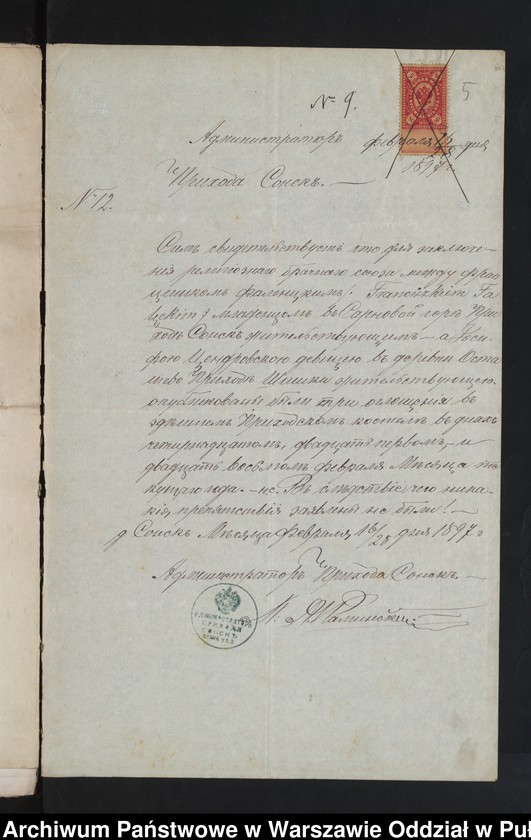 № 9.
5
Администраторъ февраля 16/28 дня
Прихода Сонскъ. — 1897 г.
№ 12.
Симъ свидетельствуетъ что для заключе-
нія религіознаго брачнаго союза между Фран-
цишкомъ Фаленцкимъ /: Franciszkiem Fa-
младенцомъ въ Сарновой горѣ При-
ходъ Сонскъ жительствующимъ — а Іозе-
фою девицею въ деревни Оста-
шево Приходъ жительствующею
опубликованы были три оглашенія въ
здешнемъ Приходскомъ костелѣ въ дняхъ
четырнадцатомъ, двадцать первомъ, — и
двадцать восьмомъ февраля Месяца те-
кущаго года. — нс. Въ следствіе чего ника-
кія препятствія заявлены не были! —
Сонскъ Месяца Февраля 16/28 дня 1897 г
Администраторъ Прихода Сонскъ. —
АДМИНИСТРАТОРЪ
ПРИХОДА
СОНСКЪ
Archiwum Państwowe w Warszawie Oddział w Pu